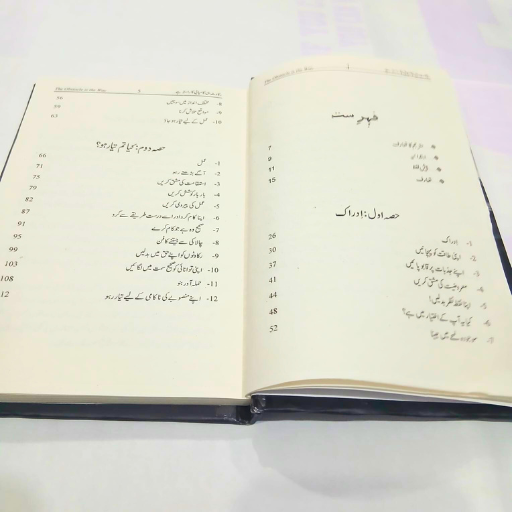 The Obstacle is the Way
فہرست
7
9
پیش لفظ 11
تعارف 15
حصہ اول: ادراک
1- ادراک 26
2- اپنی طاقت کو پہچانیں 30
3- اپنے جذبات پر قابو پائیں 37
4- معروضیت کی مشق کریں 41
5- اپنا نقطہ نظر بدلیں! 44
6- کیا یہ آپ کے اختیار میں ہے؟ 48
7- موجودہ لمحے میں جینا 52
The Obstacle is the Way
8- مختلف انداز میں سوچیں 56
9- مواقع تلاش کریں 59
10- عمل کے لیے تیار ہو جاؤ 63
حصہ دوم: کیا تم تیار ہو؟
1- عمل 66
2- آگے بڑھتے رہو 71
3- استقامت کی مشق کریں 75
4- بار بار کوشش کریں 79
5- عمل کی پیروی کریں 82
6- اپنا کام کرو اور اسے درست طریقے سے کرو 87
7- صحیح وہ ہے جو کام کرے 91
8- چالاکی سے جیتنے کا فن 95
9- رکاوٹوں کو اپنے حق میں بدلیں 99
10- اپنی توانائی کو صحیح سمت میں لگائیں 103
11- حملہ آور ہو 108
12- اپنے منصوبے کی ناکامی کے لیے تیار رہو 12